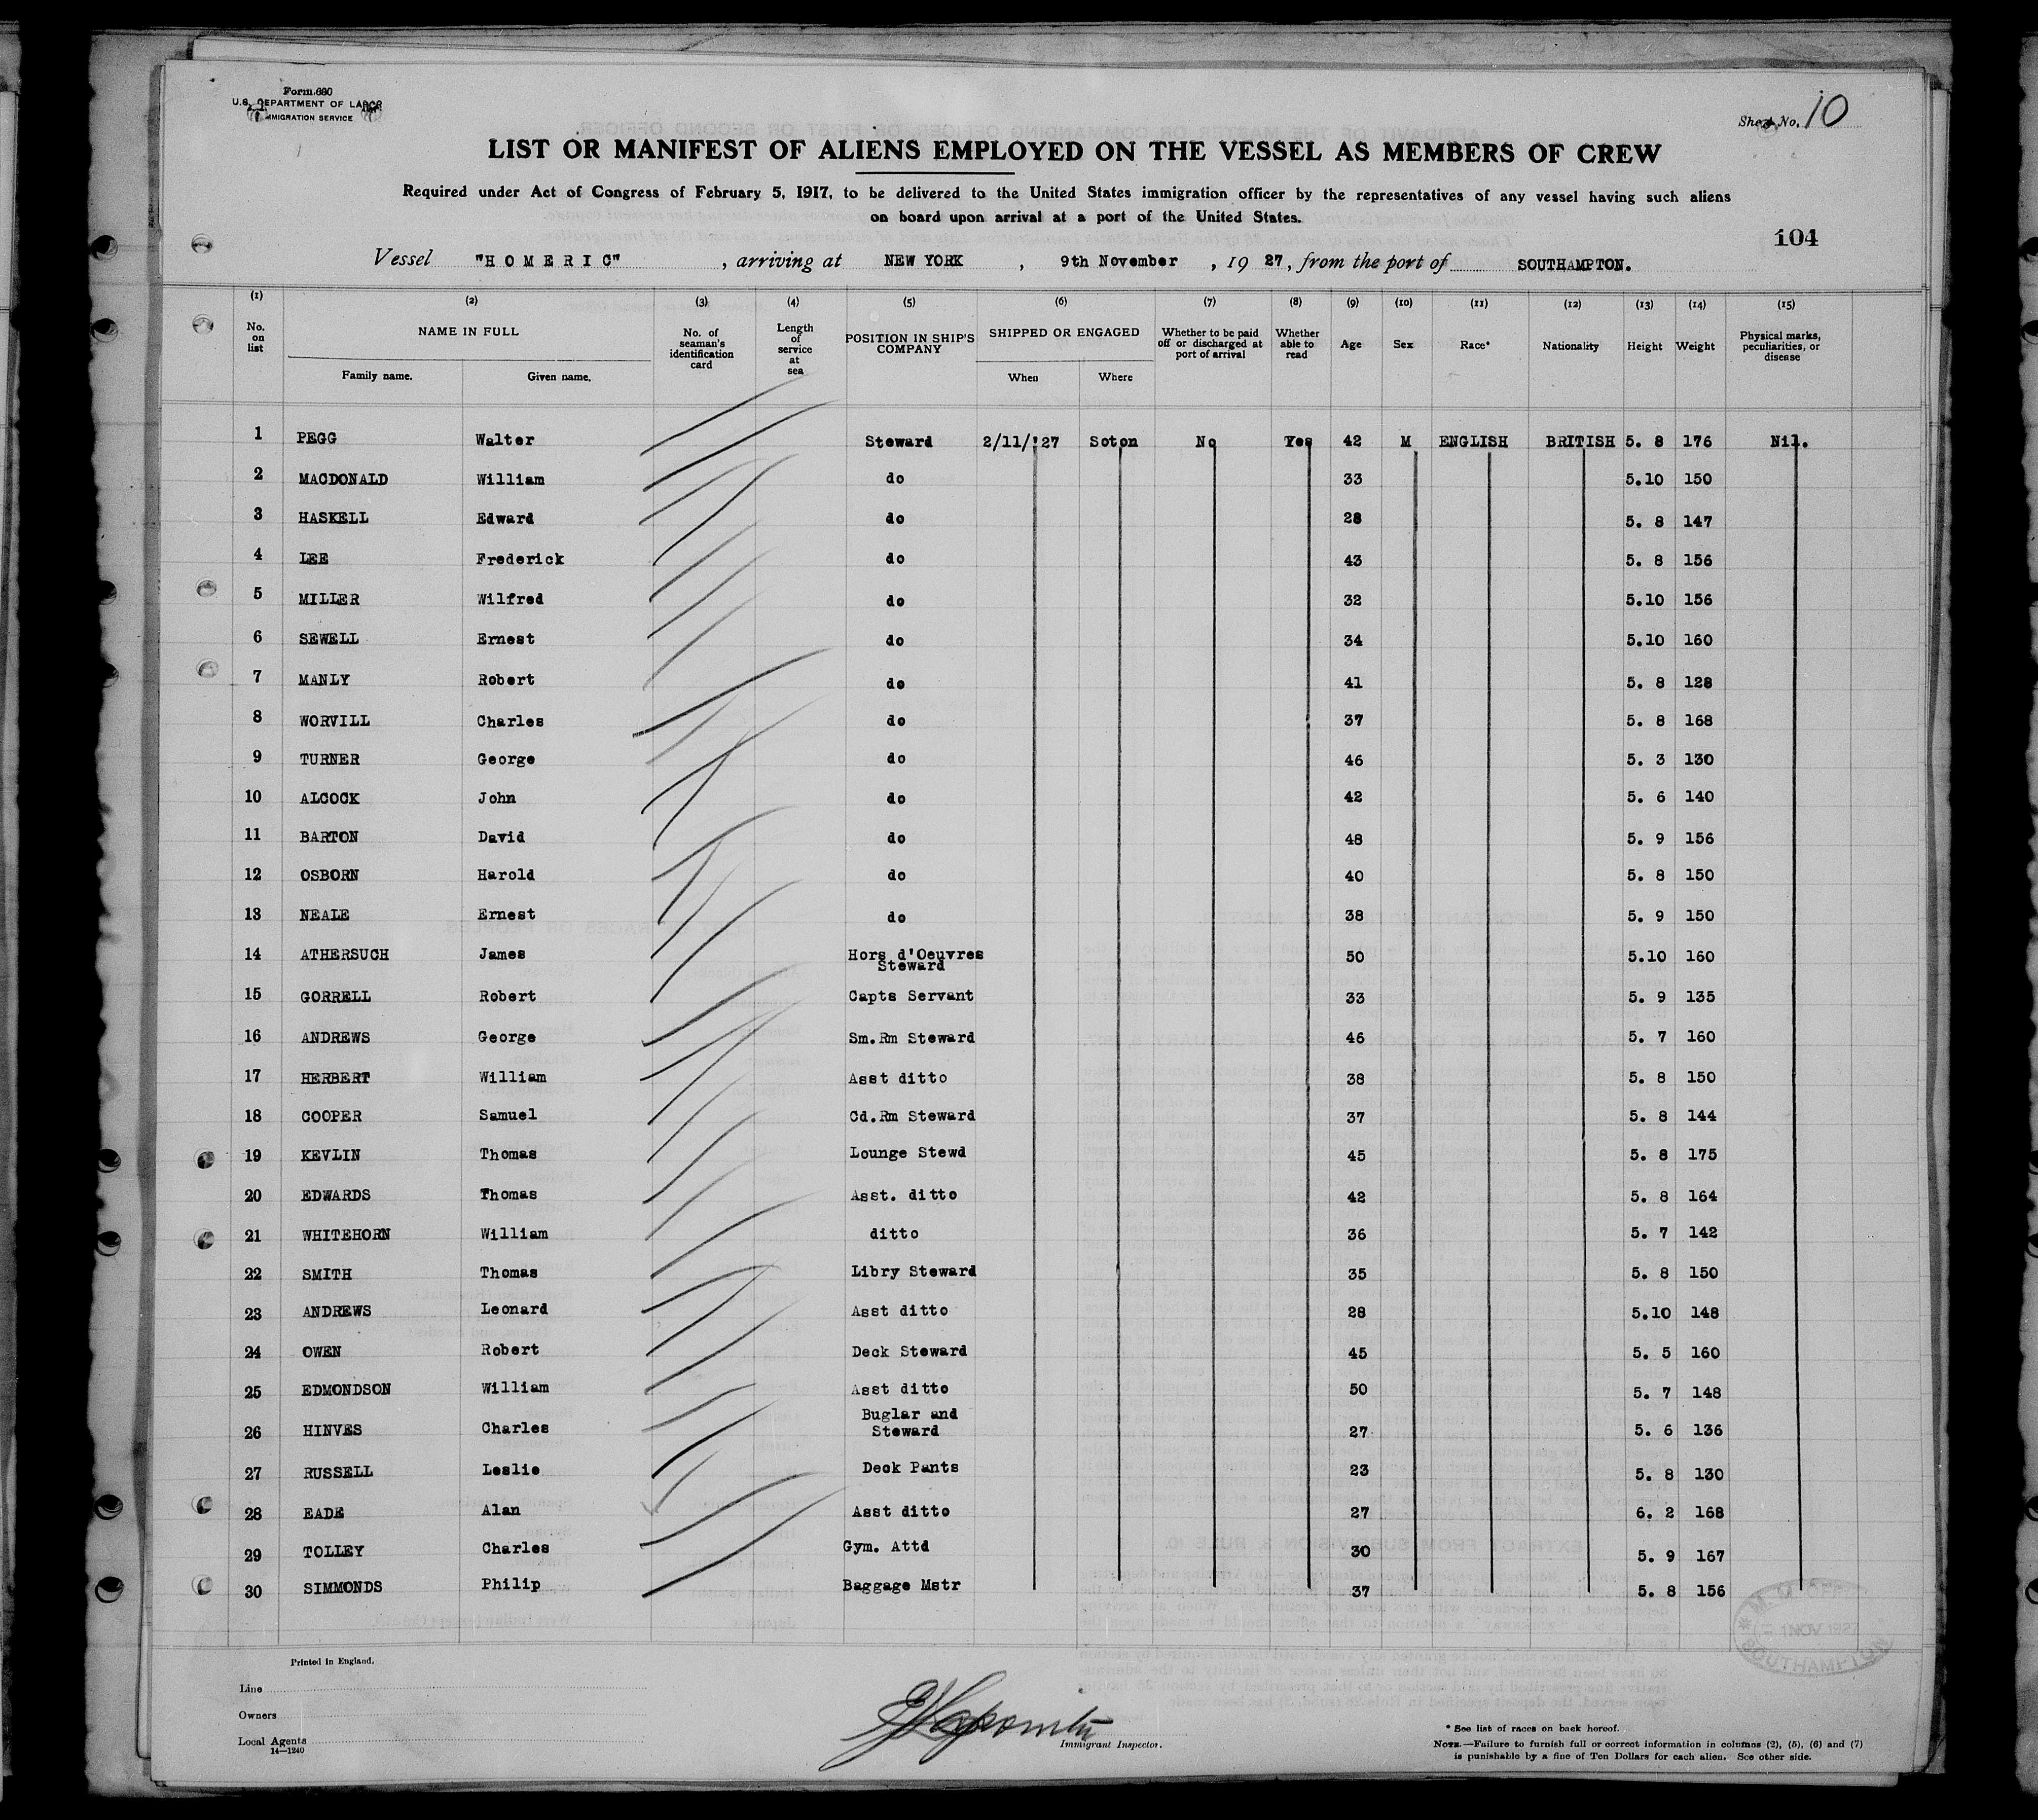 Form 680
U.S. DEPARTMENT OF LABOR
IMMIGRATION SERVICE
Sheet No. 10
LIST OR MANIFEST OF ALIENS EMPLOYED ON THE VESSEL AS MEMBERS OF CREW
Required under Act of Congress of February 5, 1917, to be delivered to the United States immigration officer by the representatives of any vessel having such aliens
on board upon arrival at a port of the United States.
104
Vessel "HOMERIC", arriving at NEW YORK, 9th November, 19 27, from the port of SOUTHAMPTON.
(1) (2) (3) (4) (5) (6) (7) (8) (9) (10) (11) (12) (13) (14) (15)
No. on list NAME IN FULL No. of seaman's identification card Length of service at sea POSITION IN SHIP'S COMPANY SHIPPED OR ENGAGED Whether to be paid off or discharged at port of arrival Whether able to read Age Sex Race* Nationality Height Weight Physical marks, peculiarities, or disease
Family name. Given name. When Where
1 PEGG Walter Steward 2/11/'27 Soton No Yes 42 M ENGLISH BRITISH 5. 8 176 Nil.
2 MACDONALD William do 33 5.10 150
3 HASKELL Edward do 28 5. 8 147
4 LEE Frederick do 43 5. 8 156
5 MILLER Wilfred do 32 5.10 156
6 SEWELL Ernest do 34 5.10 160
7 MANLY Robert do 41 5. 8 128
8 WORVILL Charles do 37 5. 8 168
9 TURNER George do 46 5. 3 130
10 ALCOCK John do 42 5. 6 140
11 BARTON David do 48 5. 9 156
12 OSBORN Harold do 40 5. 8 150
13 NEALE Ernest do 38 5. 9 150
14 ATHERSUCH James Hors d'Oeuvres Steward 50 5.10 160
15 GORRELL Robert Capts Servant 33 5. 9 135
16 ANDREWS George Sm.Rm Steward 46 5. 7 160
17 HERBERT William Asst ditto 38 5. 8 150
18 COOPER Samuel Cd.Rm Steward 37 5. 8 144
19 KEVLIN Thomas Lounge Stewd 45 5. 8 175
20 EDWARDS Thomas Asst. ditto 42 5. 8 164
21 WHITEHORN William ditto 36 5. 7 142
22 SMITH Thomas Libry Steward 35 5. 8 150
23 ANDREWS Leonard Asst ditto 28 5.10 148
24 OWEN Robert Deck Steward 45 5. 5 160
25 EDMONDSON William Asst ditto 50 5. 7 148
26 HINVES Charles Buglar and Steward 27 5. 6 136
27 RUSSELL Leslie Deck Pants 23 5. 8 130
28 EADE Alan Asst ditto 27 6. 2 168
29 TOLLEY Charles Gym. Attd 30 5. 9 167
30 SIMMONDS Philip Baggage Mstr 37 5. 8 156
NOV 1927
SOUTHAMPTON
Printed in England.
Line
Owners
Local Agents
14—1240
Immigrant Inspector.
* See list of races on back hereof.
NOTE.—Failure to furnish full or correct information in columns (2), (5), (6) and (7)
is punishable by a fine of Ten Dollars for each alien. See other side.